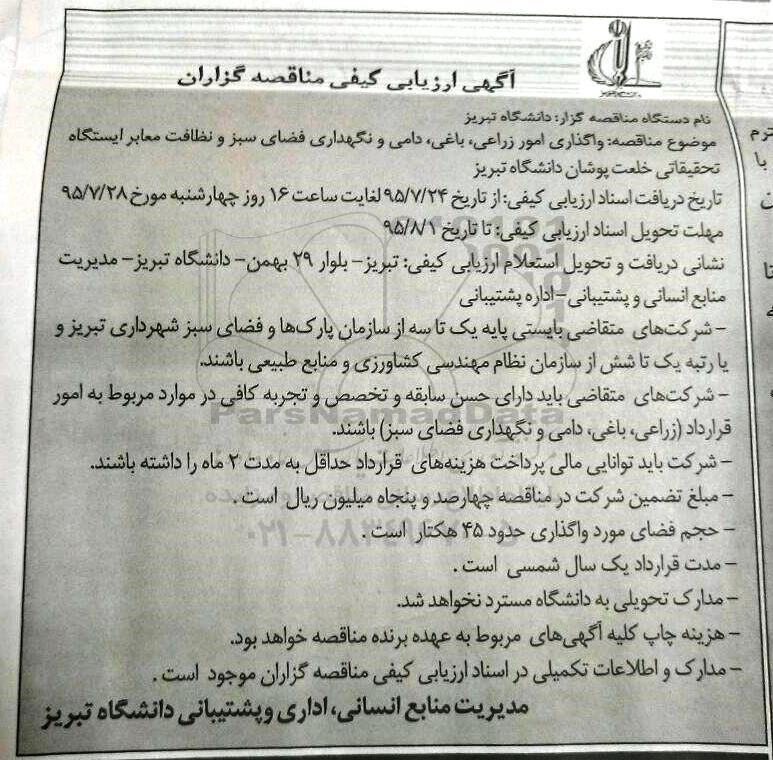 آگهی ارزیابی کیفی مناقصه گزاران
نام دستگاه مناقصه گزار: دانشگاه تبریز
موضوع مناقصه: واگذاری امور زراعی، باغی، دامی و نگهداری فضای سبز و نظافت معابر ایستگاه
تحقیقاتی خلعت پوشان دانشگاه تبریز
تاریخ دریافت اسناد ارزیابی کیفی: از تاریخ ۹۵/۷/۲۴ لغایت ساعت ۱۶ روز چهارشنبه مورخ ۹۵/۷/۲۸
مهلت تحویل اسناد ارزیابی کیفی: تا تاریخ ۹۵/۸/۱
نشانی دریافت و تحویل استعلام ارزیابی کیفی: تبریز- بلوار ۲۹ بهمن- دانشگاه تبریز- مدیریت
منابع انسانی و پشتیبانی- اداره پشتیبانی
- شرکت‌های متقاضی بایستی پایه یک تا سه از سازمان پارک‌ها و فضای سبز شهرداری تبریز و
یا رتبه یک تا شش از سازمان نظام مهندسی کشاورزی و منابع طبیعی باشند.
- شرکت‌های متقاضی باید دارای حسن سابقه و تخصص و تجربه کافی در موارد مربوط به امور
قرارداد (زراعی، باغی، دامی و نگهداری فضای سبز) باشند.
- شرکت باید توانایی مالی پرداخت هزینه‌های قرارداد حداقل به مدت ۲ ماه را داشته باشند.
- مبلغ تضمین شرکت در مناقصه چهارصد و پنجاه میلیون ریال است.
- حجم فضای مورد واگذاری حدود ۴۵ هکتار است.
- مدت قرارداد یک سال شمسی است.
- مدارک تحویلی به دانشگاه مسترد نخواهد شد.
- هزینه چاپ کلیه آگهی‌های مربوط به عهده برنده مناقصه خواهد بود.
- مدارک و اطلاعات تکمیلی در اسناد ارزیابی کیفی مناقصه گزاران موجود است.
مدیریت منابع انسانی، اداری و پشتیبانی دانشگاه تبریز
ParsNamadData